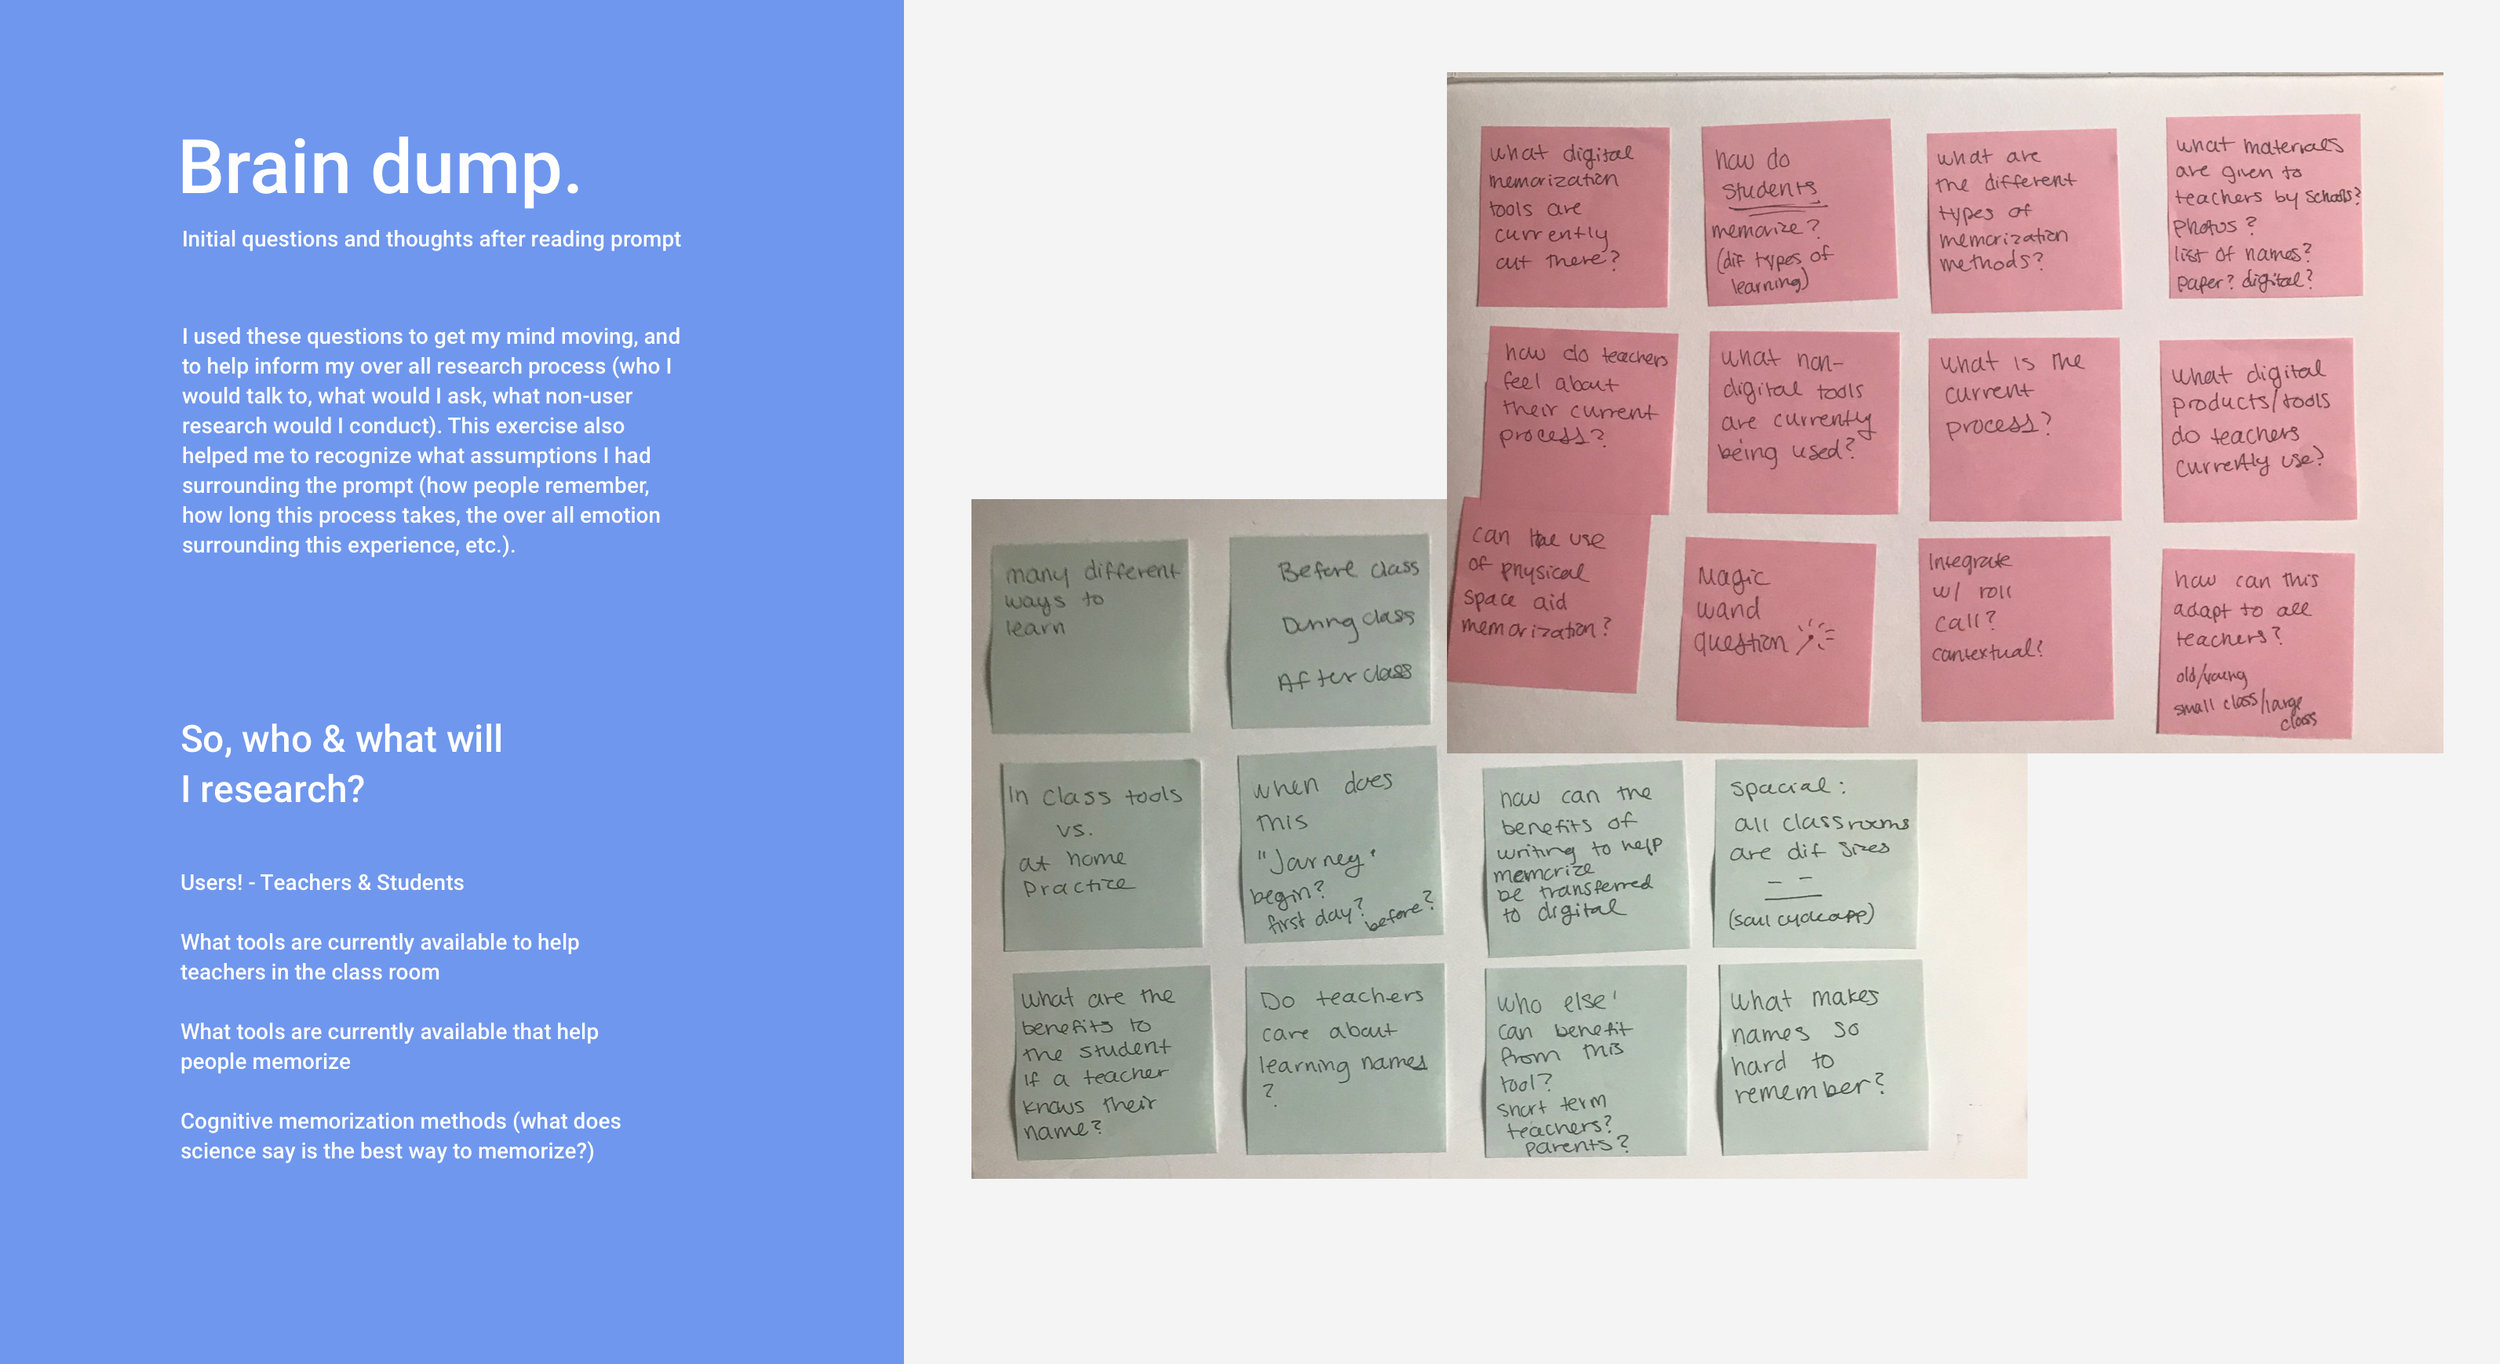 Brain dump.
Initial questions and thoughts after reading prompt
I used these questions to get my mind moving, and
to help inform my over all research process (who I
would talk to, what would I ask, what non-user
research would I conduct). This exercise also
helped me to recognize what assumptions I had
surrounding the prompt (how people remember,
how long this process takes, the over all emotion
surrounding this experience, etc.).
So, who & what will
I research?
Users! - Teachers & Students
What tools are currently available to help
teachers in the class room
What tools are currently available that help
people memorize
Cognitive memorization methods (what does
science say is the best way to memorize?)
what digital
memorization
tools are
currently
out there?
how do
students
memorize?
(dif types of
learning)
what are
the different
types of
memorization
methods?
what materials
are given to
teachers by schools?
photos?
list of names?
paper? digital?
how do teachers
feel about
their current
process?
what non-
digital tools
are currently
being used?
what is the
current
process?
what digital
products/tools
do teachers
currently use?
can the use
of physical
space aid
memorization?
Magic
wand
question
Integrate
w/ roll
call?
contextual?
how can this
adapt to all
teachers?
old/young
small class/large
class
many different
ways to
learn
Before class
During class
After class
In class tools
vs.
at home
practice
when does
this
"Journey"
begin?
first day? before?
how can the
benefits of
writing to help
memorize
be transferred
to digital
spacial:
all classrooms
are dif sizes
(soul cycle app)
what are the
benefits to
the student
if a teacher
knows their
name?
Do teachers
care about
learning names
?
who else
can benefit
from this
tool?
short term
teachers?
parents?
what makes
names so
hard to
remember?